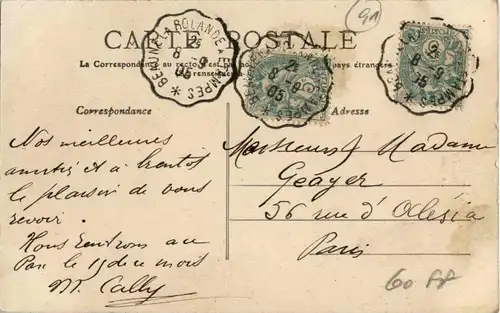 CARTE POSTALE
La Correspondance au recto
pays étrangers
91
BEAUNE-LA-ROLANDE A ETAMPES
2E
8 - 9
05
Correspondance
Adresse
Nos meilleures
amitiés et à bientôt
le plaisir de vous
revoir.
Nous rentrons au
le 15 de ce mois
M. Cally
Monsieur & Madame
Geayer
56 rue d'Alésia
Paris
60 FF